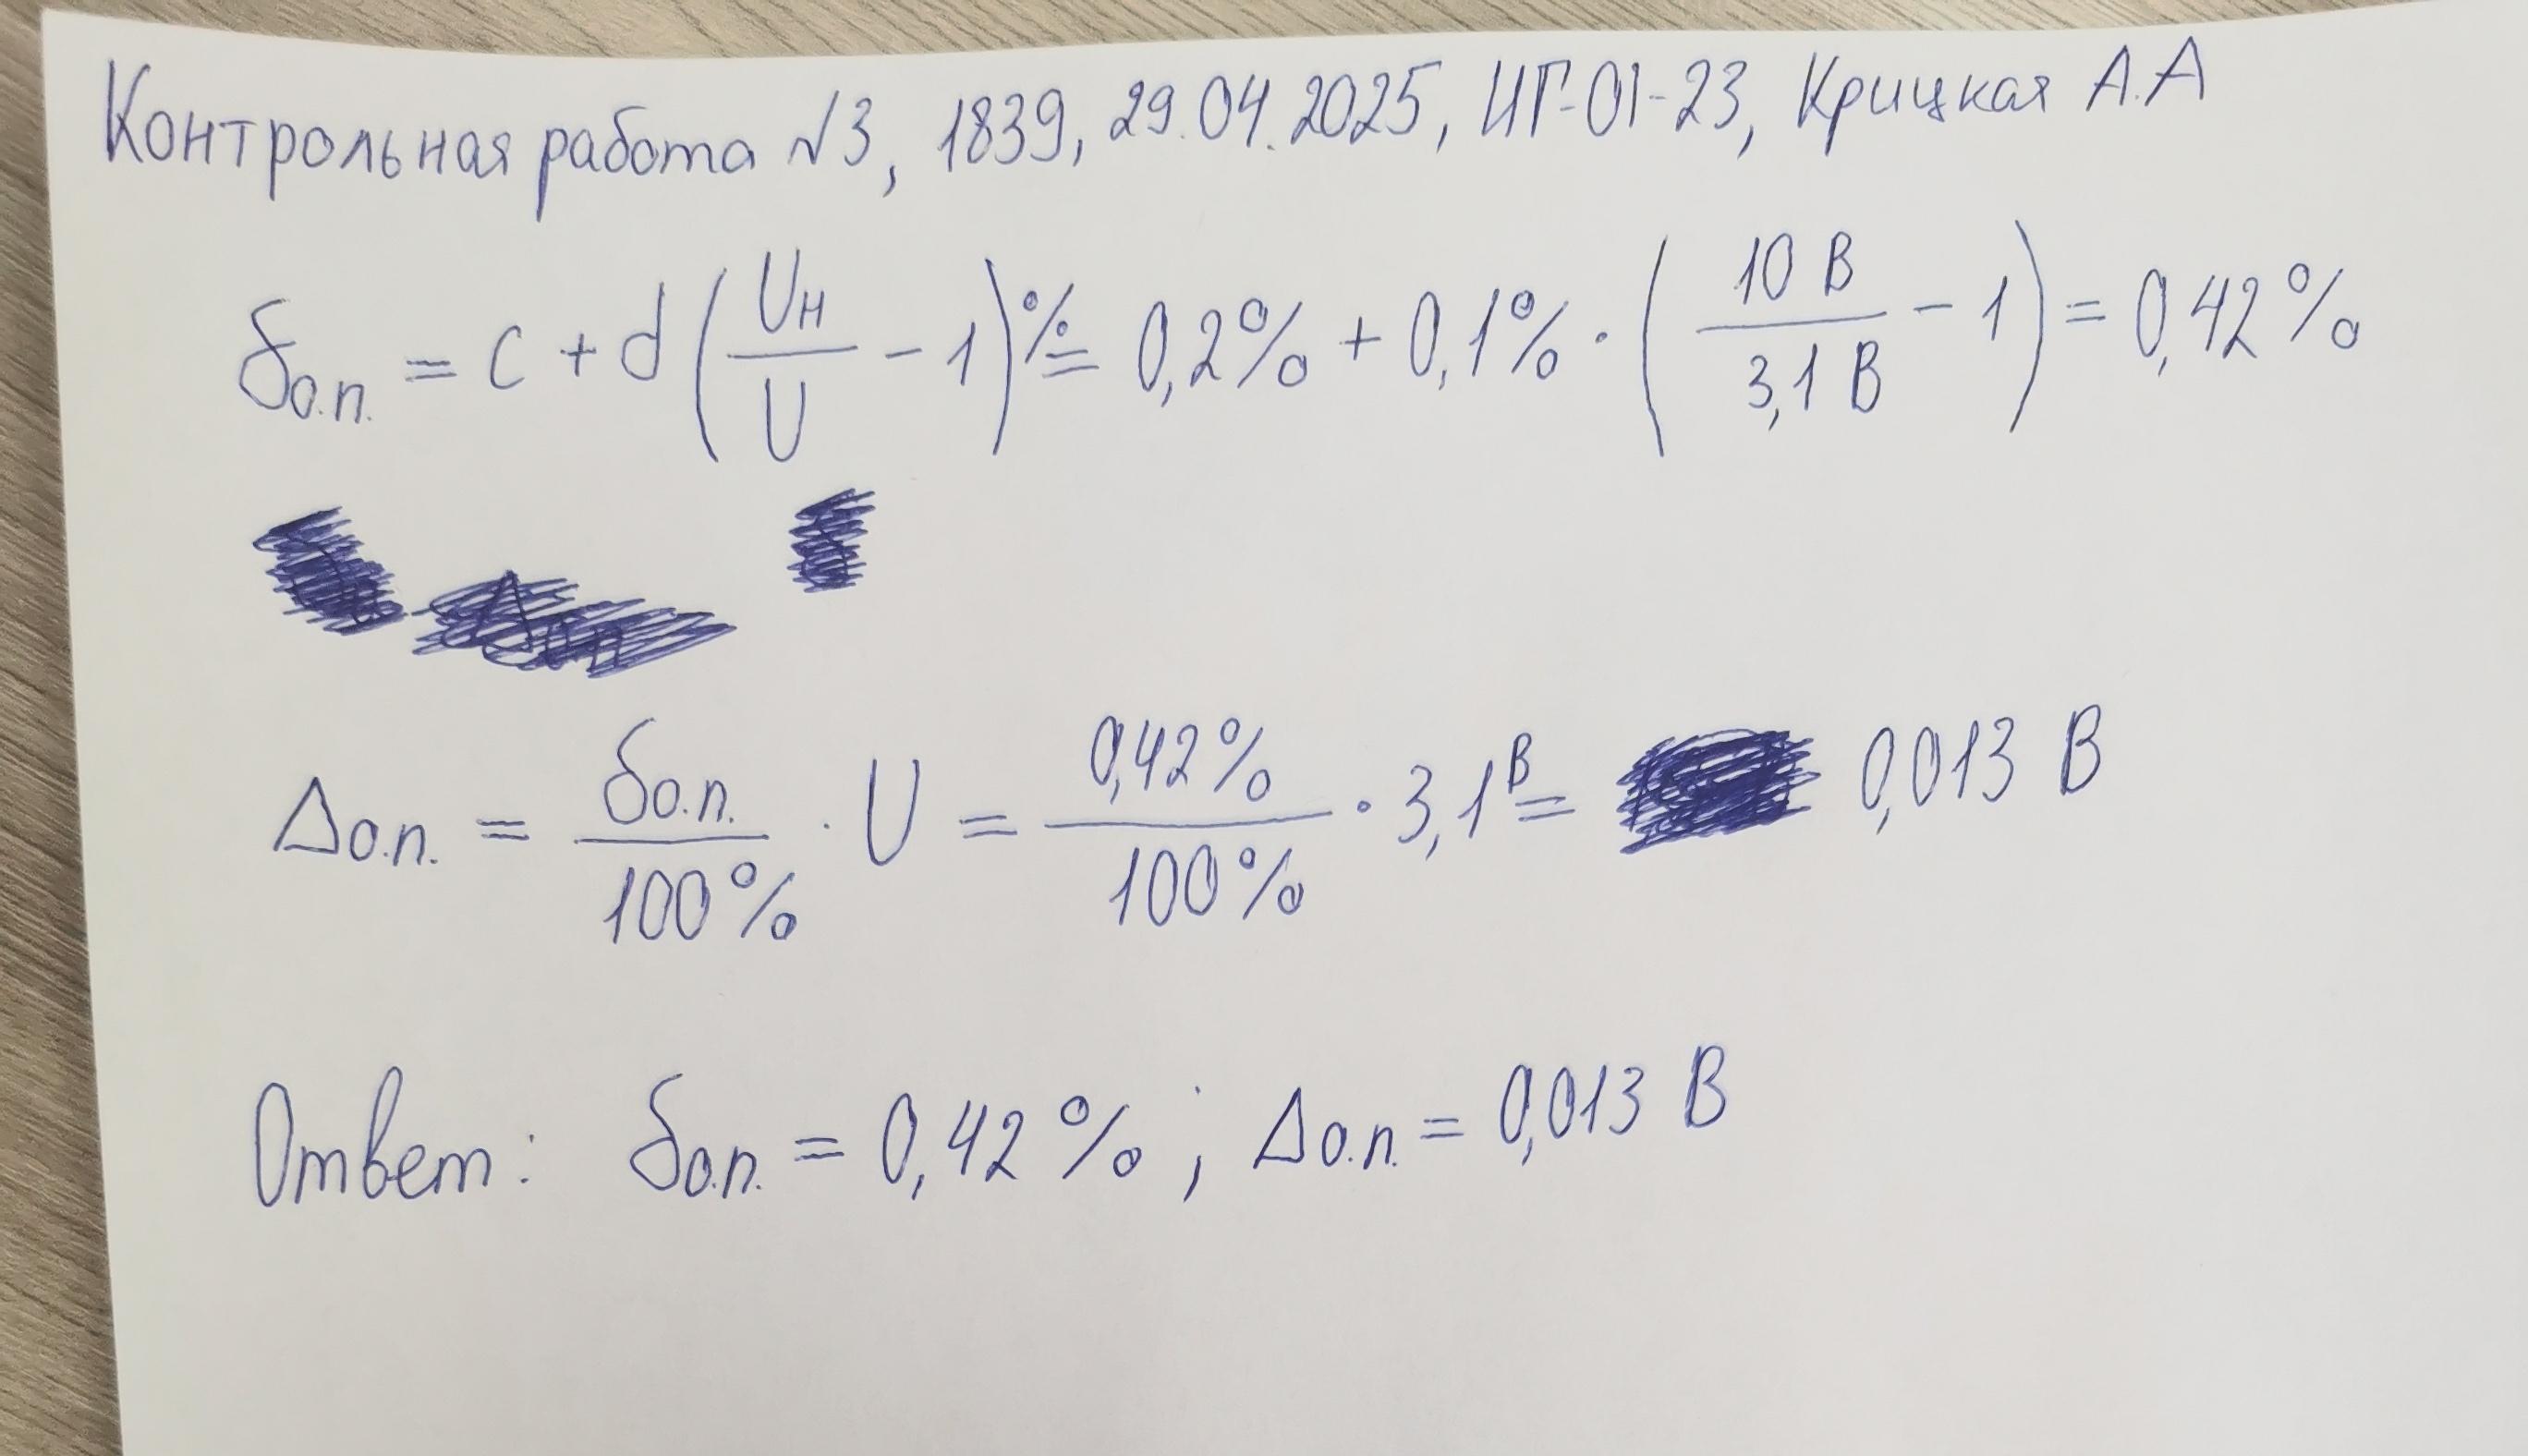 Контрольная работа №3, 1839, 29.04.2025, ИГ-01-23, Крицкая А.А
δо.п. = c + d (Uн/U - 1)% = 0,2% + 0,1% · (10 В/3,1 В - 1) = 0,42%
Δо.п. = δо.п./100% · U = 0,42%/100% · 3,1 В = 0,013 В
Ответ: δо.п. = 0,42 % ; Δо.п. = 0,013 В